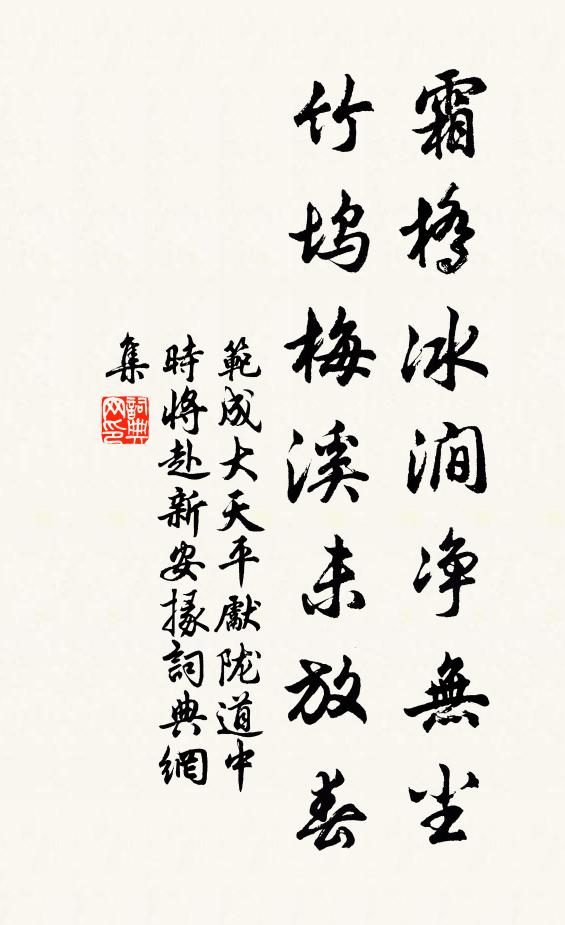 霜橋冰澗净無塵
竹塢梅溪未放春
範成大天平獻陇道中
時將赴新安掾詞典網
集
詞典
网印